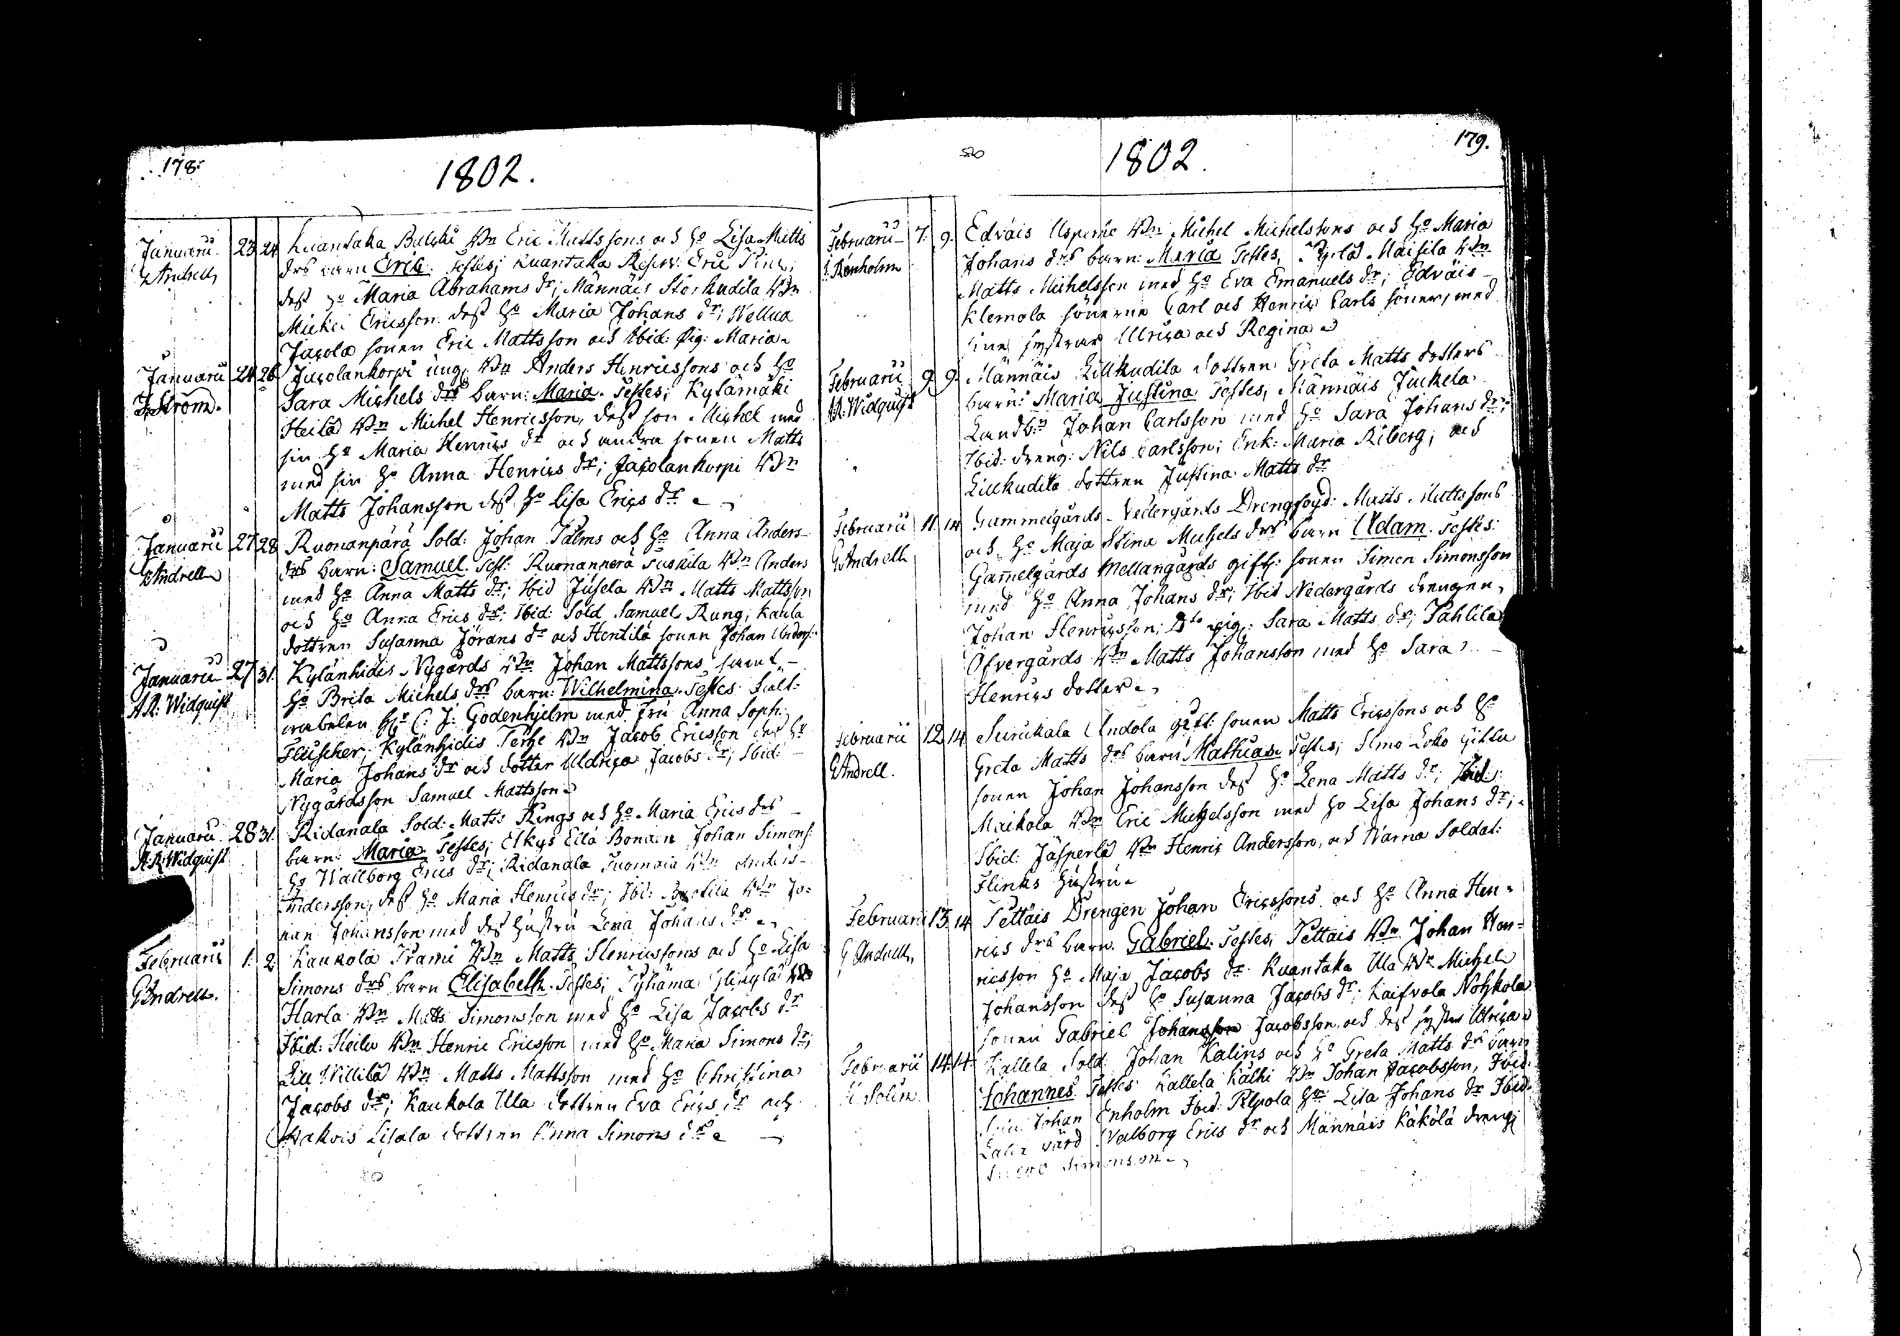 178.
1802.
Januarii 23. 24. Kuantaka Bulski Bdn Eric Mattssons och Ho Lisa Matts
G Andrell drs barn Eric. Testes; Kuantaka Reserv: Eric
dess Ho Maria Abrahams dr; Männäis Storkudila Bdn
Michel Ericsson dess Ho Maria Johans dr; Wellua
Jacola sonen Eric Mattsson och Ibid: Pig: Maria
Januarii 24. 26. Jacolankorpi ung Bdn Anders Henricssons och Ho
Ström. Sara Michels drs barn: Maria. Testes; Kylämäki
Heila Bdn Michel Henricsson, dess son Michel med
sin Ho Maria Henrics dr och andra sonen Matts
med sin Ho Anna Henrics dr; Jacolankorpi Bdn
Matts Johansson dess Ho Lisa Erics dr
Januarii 27. 28. Ruonanpärä Sold: Johan Palms och Ho Anna Anders
G Andrell drs barn: Samuel. Test: Ruonanperä Bdn Anders
med Ho Anna Matts dr; Ibid Jusela Bdn Matts Mattsson
och Ho Anna Erics dr: Ibid: Sold Samuel Rung, Kaula
dottren Susanna Jörans dr och Hentilä sonen Johan Anders:
Januarii 27 31. Kylänhidis Nygårds Bdn Johan Mattssons samt
A.R: Widquist Ho Brita Michels drs barn: Wilhelmina. Testes:
C: J: Godenhjelm med Fru Anna Soph:
Kylänhidis Bdn Jacob Ericsson dess Ho
Maria Johans dr och dotter Uldrica Jacobs dr; Ibid:
Nygårdsson Samuel Mattsson
Januarii 28 31. Ridanala Sold: Matts Rings och Ho Maria Erics drs
A.R: Widquist barn: Maria Testes; Elkys Eilä Bonden Johan Simons:
Ho Wallborg Erics dr; Ridanala Tuomaia Bdn Anders
Andersson, dess Ho Maria Henrics dr; Ibid: Bdn Jo-
han Johansson med dess hustru Lena Johans dr
Februarii 1. 2 Kaukola Prami Bdn Matts Henricssons och Ho Lisa
G Andrell. Simons drs barn Elisabeth. Testes;
Harla Bdn Matts Simonsson med Ho Lisa Jacobs dr
Ibid: Heilu Bdn Henric Ericsson med Ho Maria Simons dr;
Lill Willilä Bdn Matts Mattsson med Ho Christina
Jacobs dr; Kaukola Ula dottren Eva Erics dr och
Hakois Lisala dottren Anna Simons dr
179.
1802.
Februarii 7. 9. Edväis Uspenie Bdn Michel Michelssons och Ho Maria
Renholm Johans drs barn: Maria Testes, Maisila Bdn
Matts Michelsson med Ho Eva Emanuels dr; Edväis
Klemola sönerne Carl och Henric Carls söner, med
sine systrar Ulrica och Regina
Februarii 9. 9. Männäis Lillkudila dottren Greta Matts dotters
A.R: Widquist barn: Maria Justina Testes, Männäis Juckela
Landb:n Johan Carlsson med Ho Sara Johans dr;
Ibid: dreng: Nils Carlsson; Enk: Maria Riberg; och
Lillkudila dottren Justina Matts dr
Februarii 11. 14 Gammelgårds Nedergårds Matts Mattssons
G Andrell och Ho Maja Stina Michels drs barn Adam. Testes:
Gamelgårds Mellangårds gift: sonen Simon Simonsson
med Ho Anna Johans dr; Ibid Nedergårds drengen,
Johan Henricsson; Dto pig: Sara Matts dr; Pahlila
Öfvergårds Bdn Matts Johansson med Ho Sara
Henrics dotter
Februarii 12. 14 Surukala Andola gift: sonen Matts Ericssons och Ho
G Andrell. Greta Matts drs barn Mathias Testes; Ilmo Loko gifta
sonen Johan Johansson dess Ho Lena Matts dr; Ibid:
Maikola Bdn Eric Michelsson med Ho Lisa Johans dr;
Ibid: Jasperla Bdn Henric Andersson, och Warna Soldat:
Flinks hustru
Februarii 13. 14 Pettäis Drengen Johan Ericssons och Ho Anna Hen-
G Andrell, rics drs barn Gabriel. Testes; Pettäis Bdn Johan Hen-
ricsson Ho Maja Jacobs dr. Kuantaka Ula Bdn Michel
Johansson dess Ho Susanna Jacobs dr; Kaifvola Nohkola
sonen Gabriel Johansson Jacobsson och dess syster Ulrica
Februarii 14. 14. Kallela Sold: Johan Kalins och Ho Greta Matts drs barn
Johannes. Testes: Kallela Kälhi Bdn Johan Jacobsson, Ibid:
Johan Enholm Ibid: Pelpola Ho Lisa Johans dr Ibid:
värd Walborg Erics dr och Männäis Käkölä dreng
Simonsson